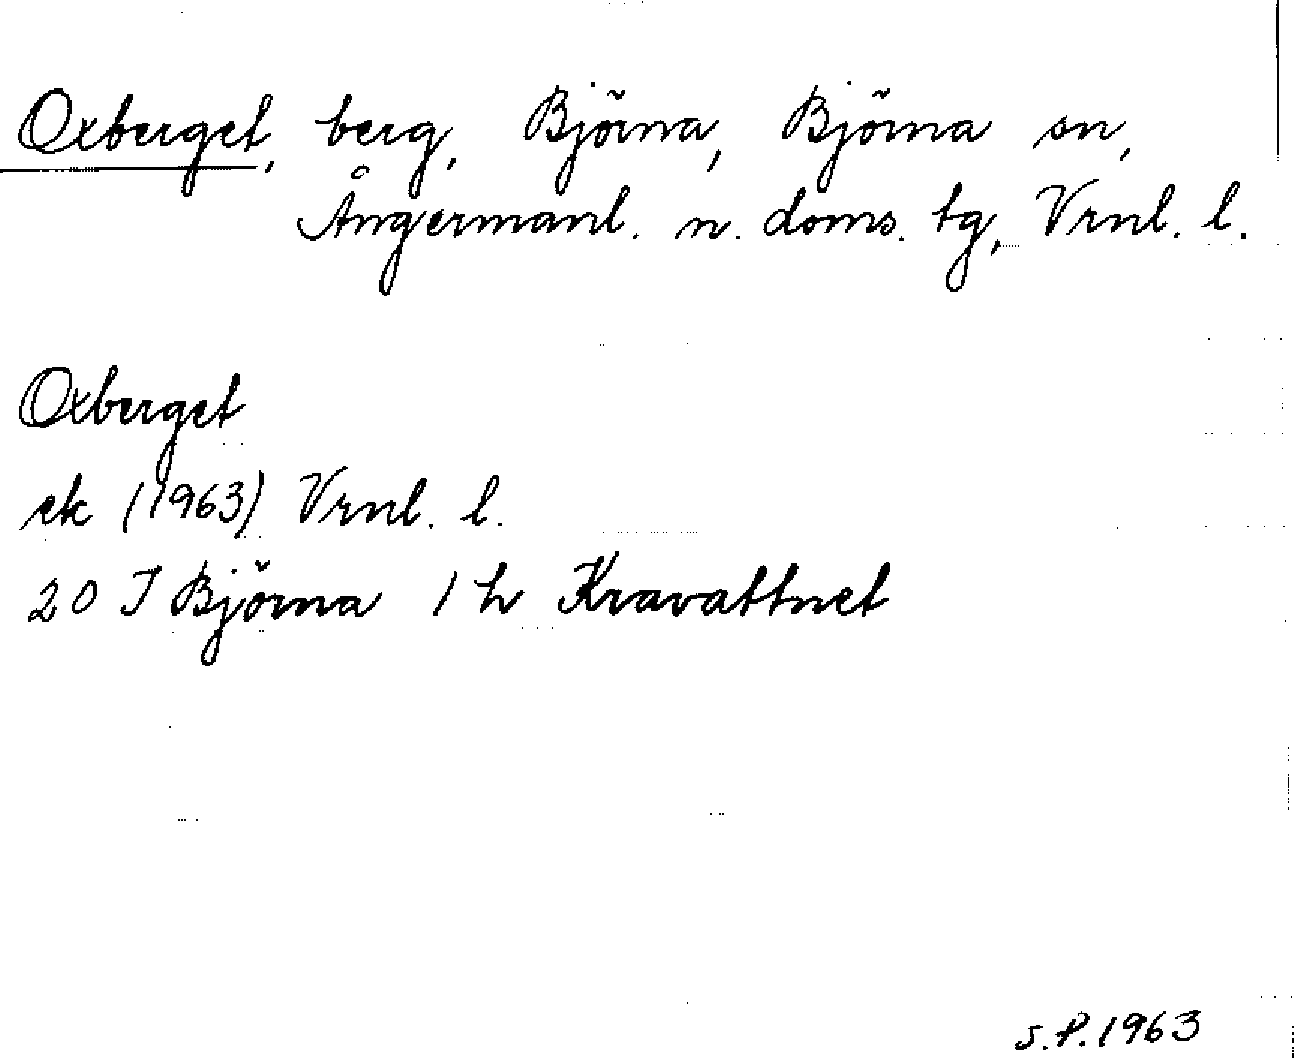 Oxberget, berg, Björna, Björna sn,
Ångermanl. n. doms. tg, Vrnl. l.
Oxberget
ek (1963) Vrnl. l.
20 I Björna 1 h Kravattnet
S.P. 1963